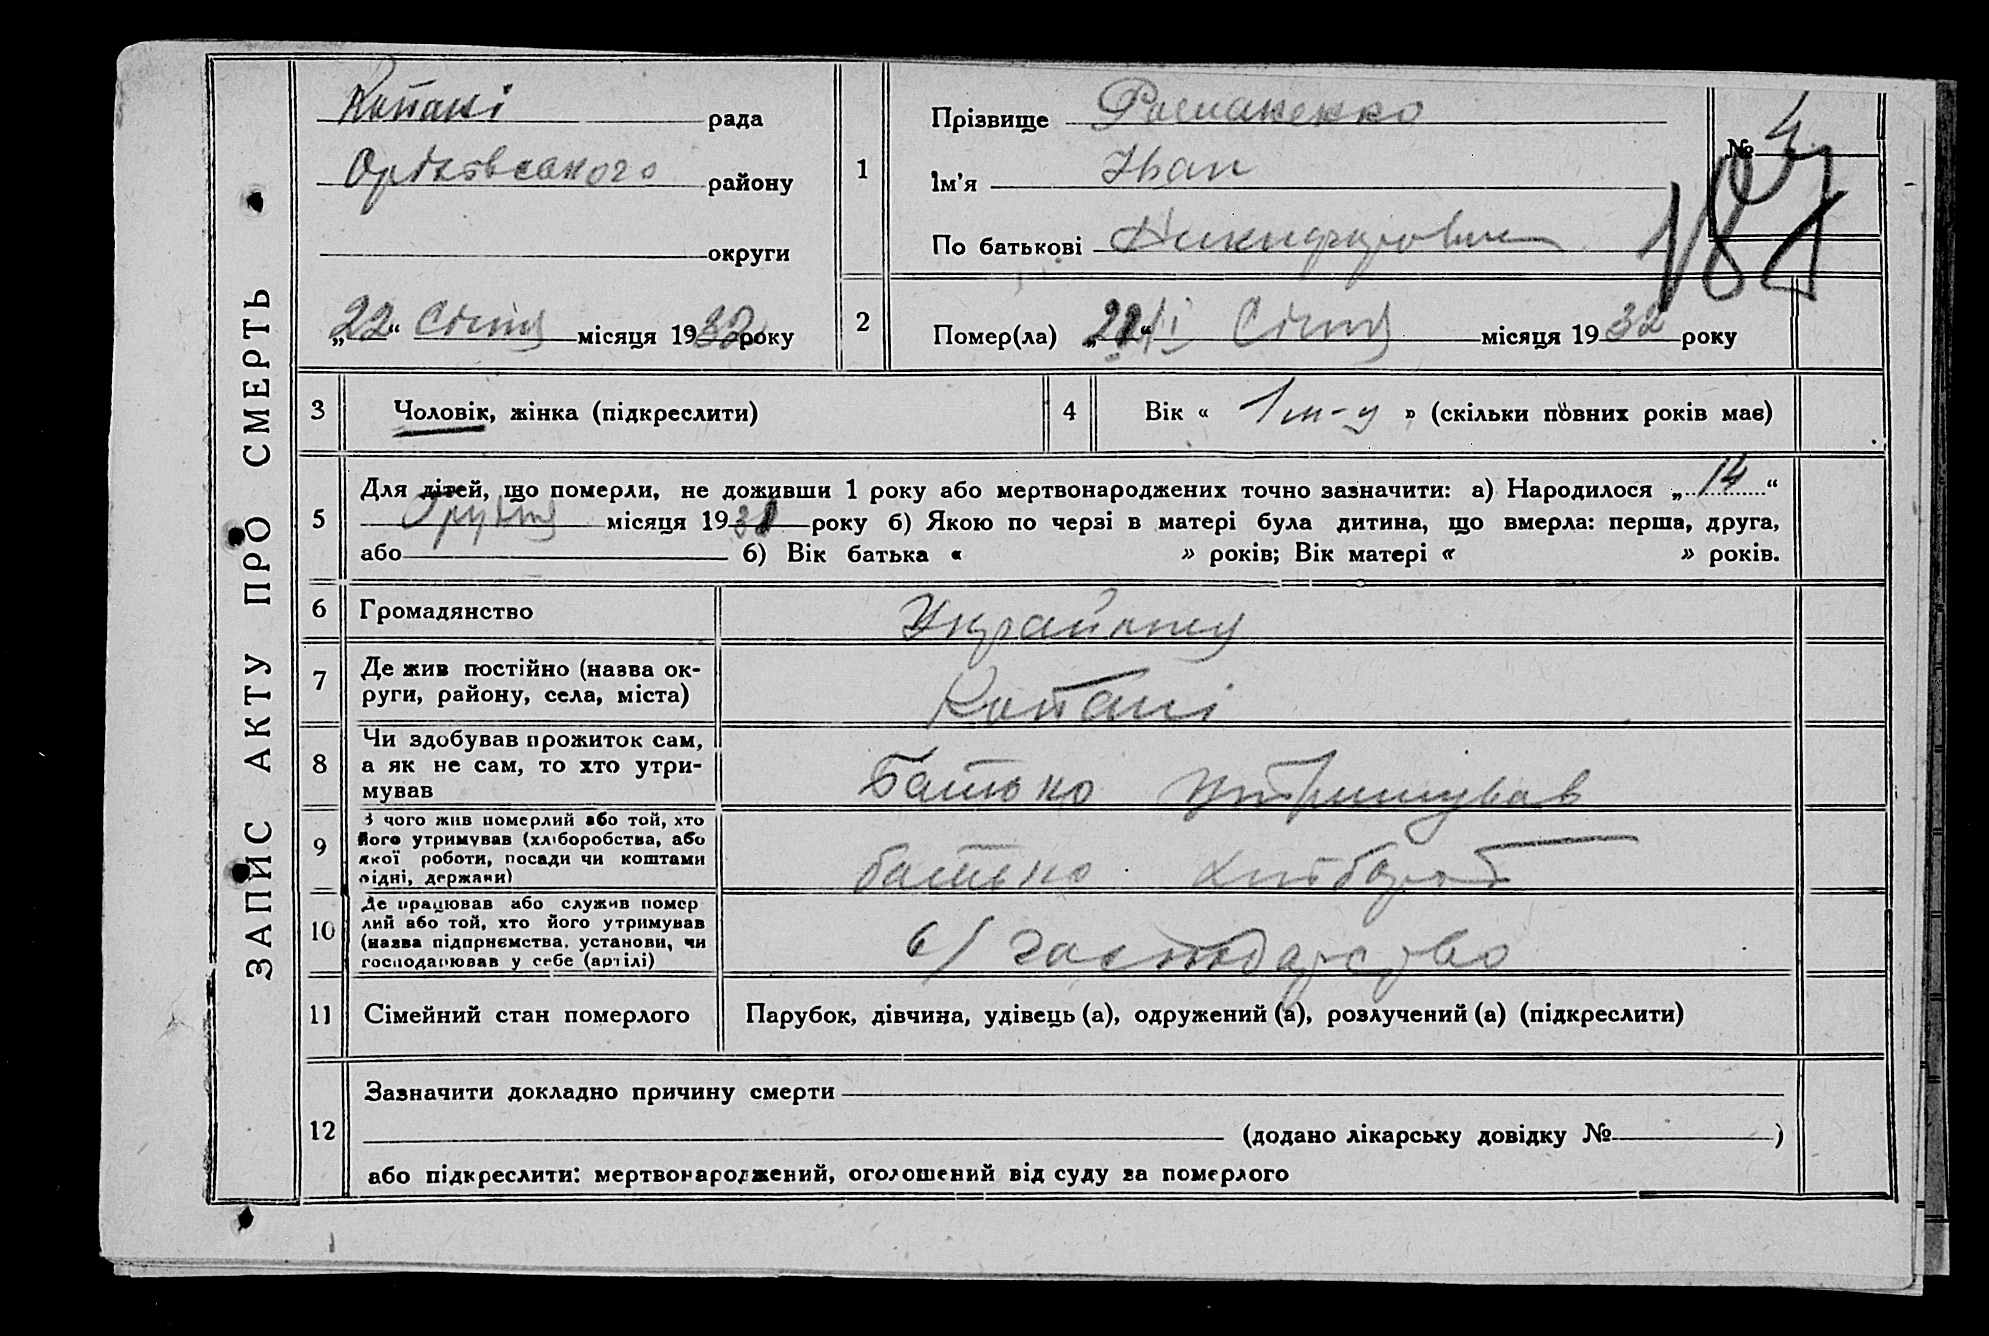 ЗАПИС АКТУ ПРО СМЕРТЬ
Копані рада
Оріхівського району
округи
„22“ Січня місяця 1932 року
1
Прізвище Романенко
Ім’я Іван
По батькові Никифорович
№ 4
2
Помер(ла) „ “ Січня місяця 1932 року
3 Чоловік, жінка (підкреслити)
4 Вік « 1 м-ц » (скільки повних років має)
5 Для дітей, що померли, не доживши 1 року або мертвонароджених точно зазначити: а) Народилося „14“
Грудня місяця 1931 року б) Якою по черзі в матері була дитина, що вмерла: перша, друга,
або б) Вік батька « » років; Вік матері « » років.
6 Громадянство
7 Де жив постійно (назва ок-
руги, району, села, міста) Копані
8 Чи здобував прожиток сам,
а як не сам, то хто утри-
мував Батько утримував
9 З чого жив померлий або той, хто
його утримував (хліборобства, або
якої роботи, посади чи коштами
рідні, держави) батько хлібороб
10 Де працював або служив помер
лий або той, хто його утримував
(назва підприємства, установи, чи
господарював у себе (артілі) в/ господарство
11 Сімейний стан померлого Парубок, дівчина, удівець (а), одружений (а), розлучений (а) (підкреслити)
12 Зазначити докладно причину смерти
(додано лікарську довідку № )
або підкреслити: мертвонароджений, оголошений від суду за померлого